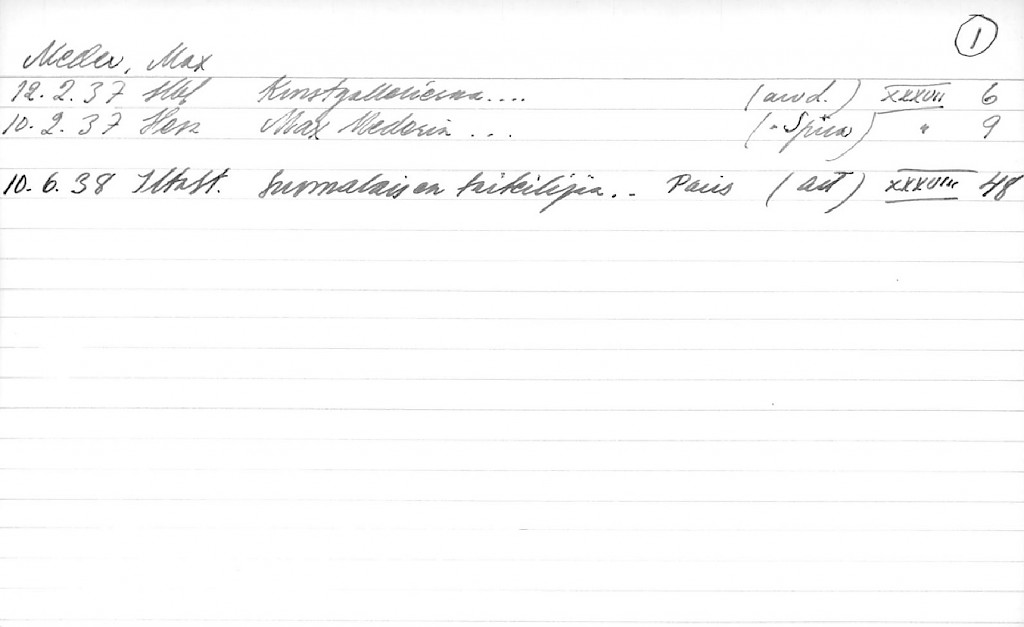 1
Meder, Max
12.2.37 Hbl Konstgallerierna.... (arvd.) XXXVII 6
10.2.37 Max Mederin ... ( " ) " 9
10.6.38 Iltast. Suomalaisen taiteilijia.. Paris (art) XXXVIII 48